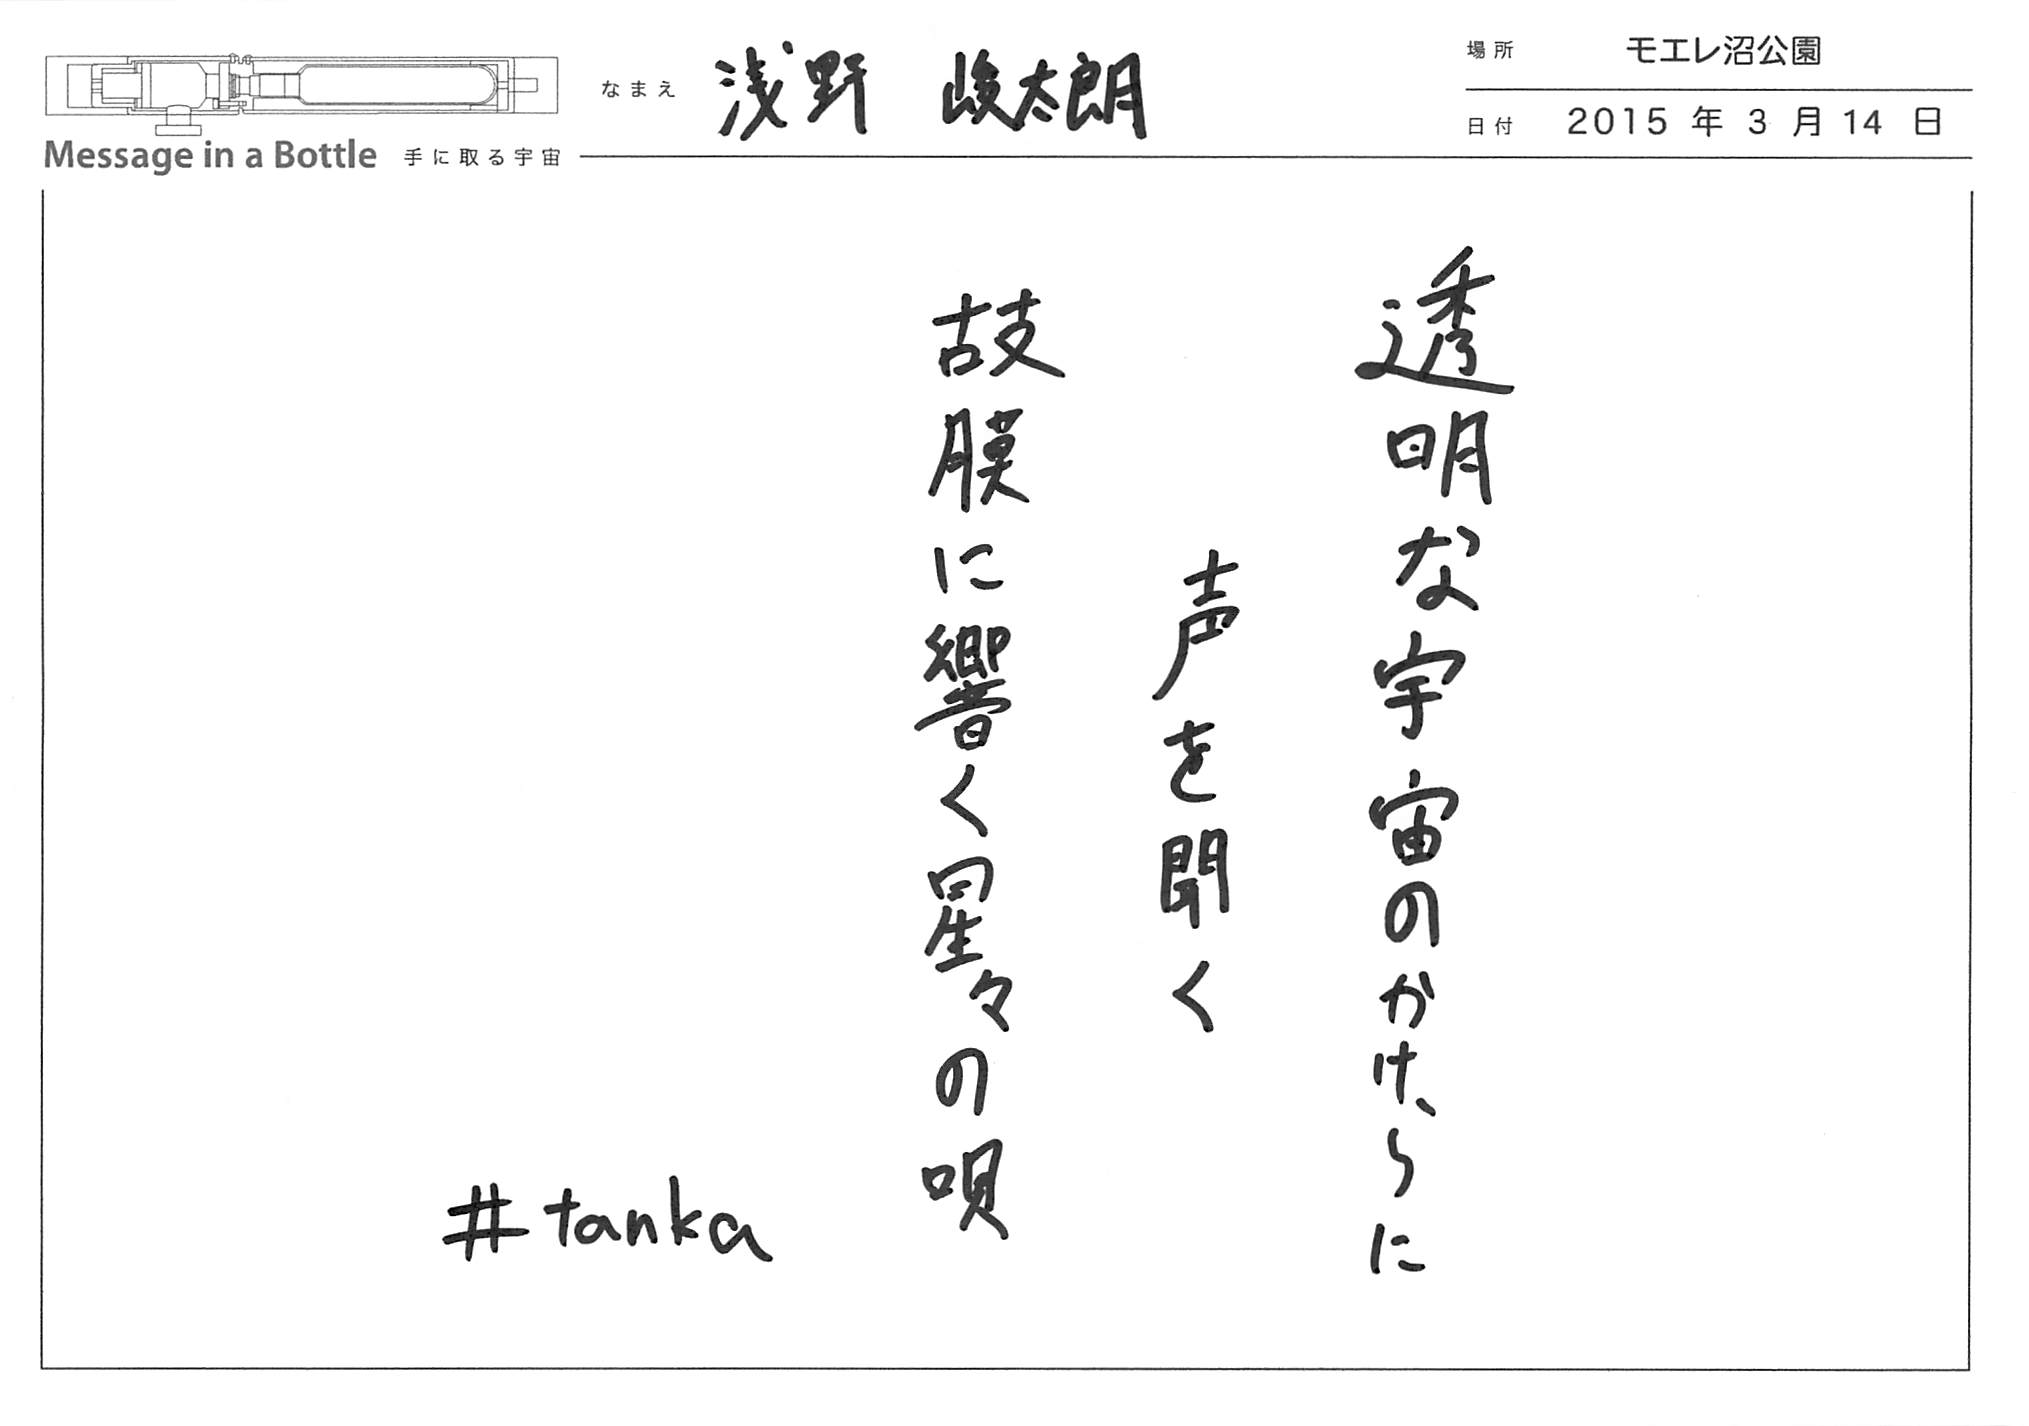 Message in a Bottle 手に取る宇宙
なまえ 浅野 峻太朗
場所 モエレ沼公園
日付 2015 年 3 月 14 日
透明な宇宙のかけらに
声を聞く
鼓膜に響く星々の唄
#tanka